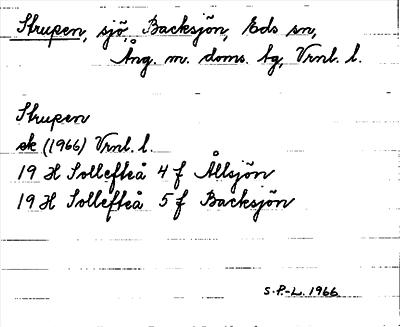 Strupen, sjö, Backsjön, Eds sn,
Ång. m. doms. tg, Vrnl. l.
Strupen
ek (1966) Vrnl. l.
19 H Sollefteå 4 f Ållsjön
19 H Sollefteå 5 f Backsjön
S.P.-L. 1966